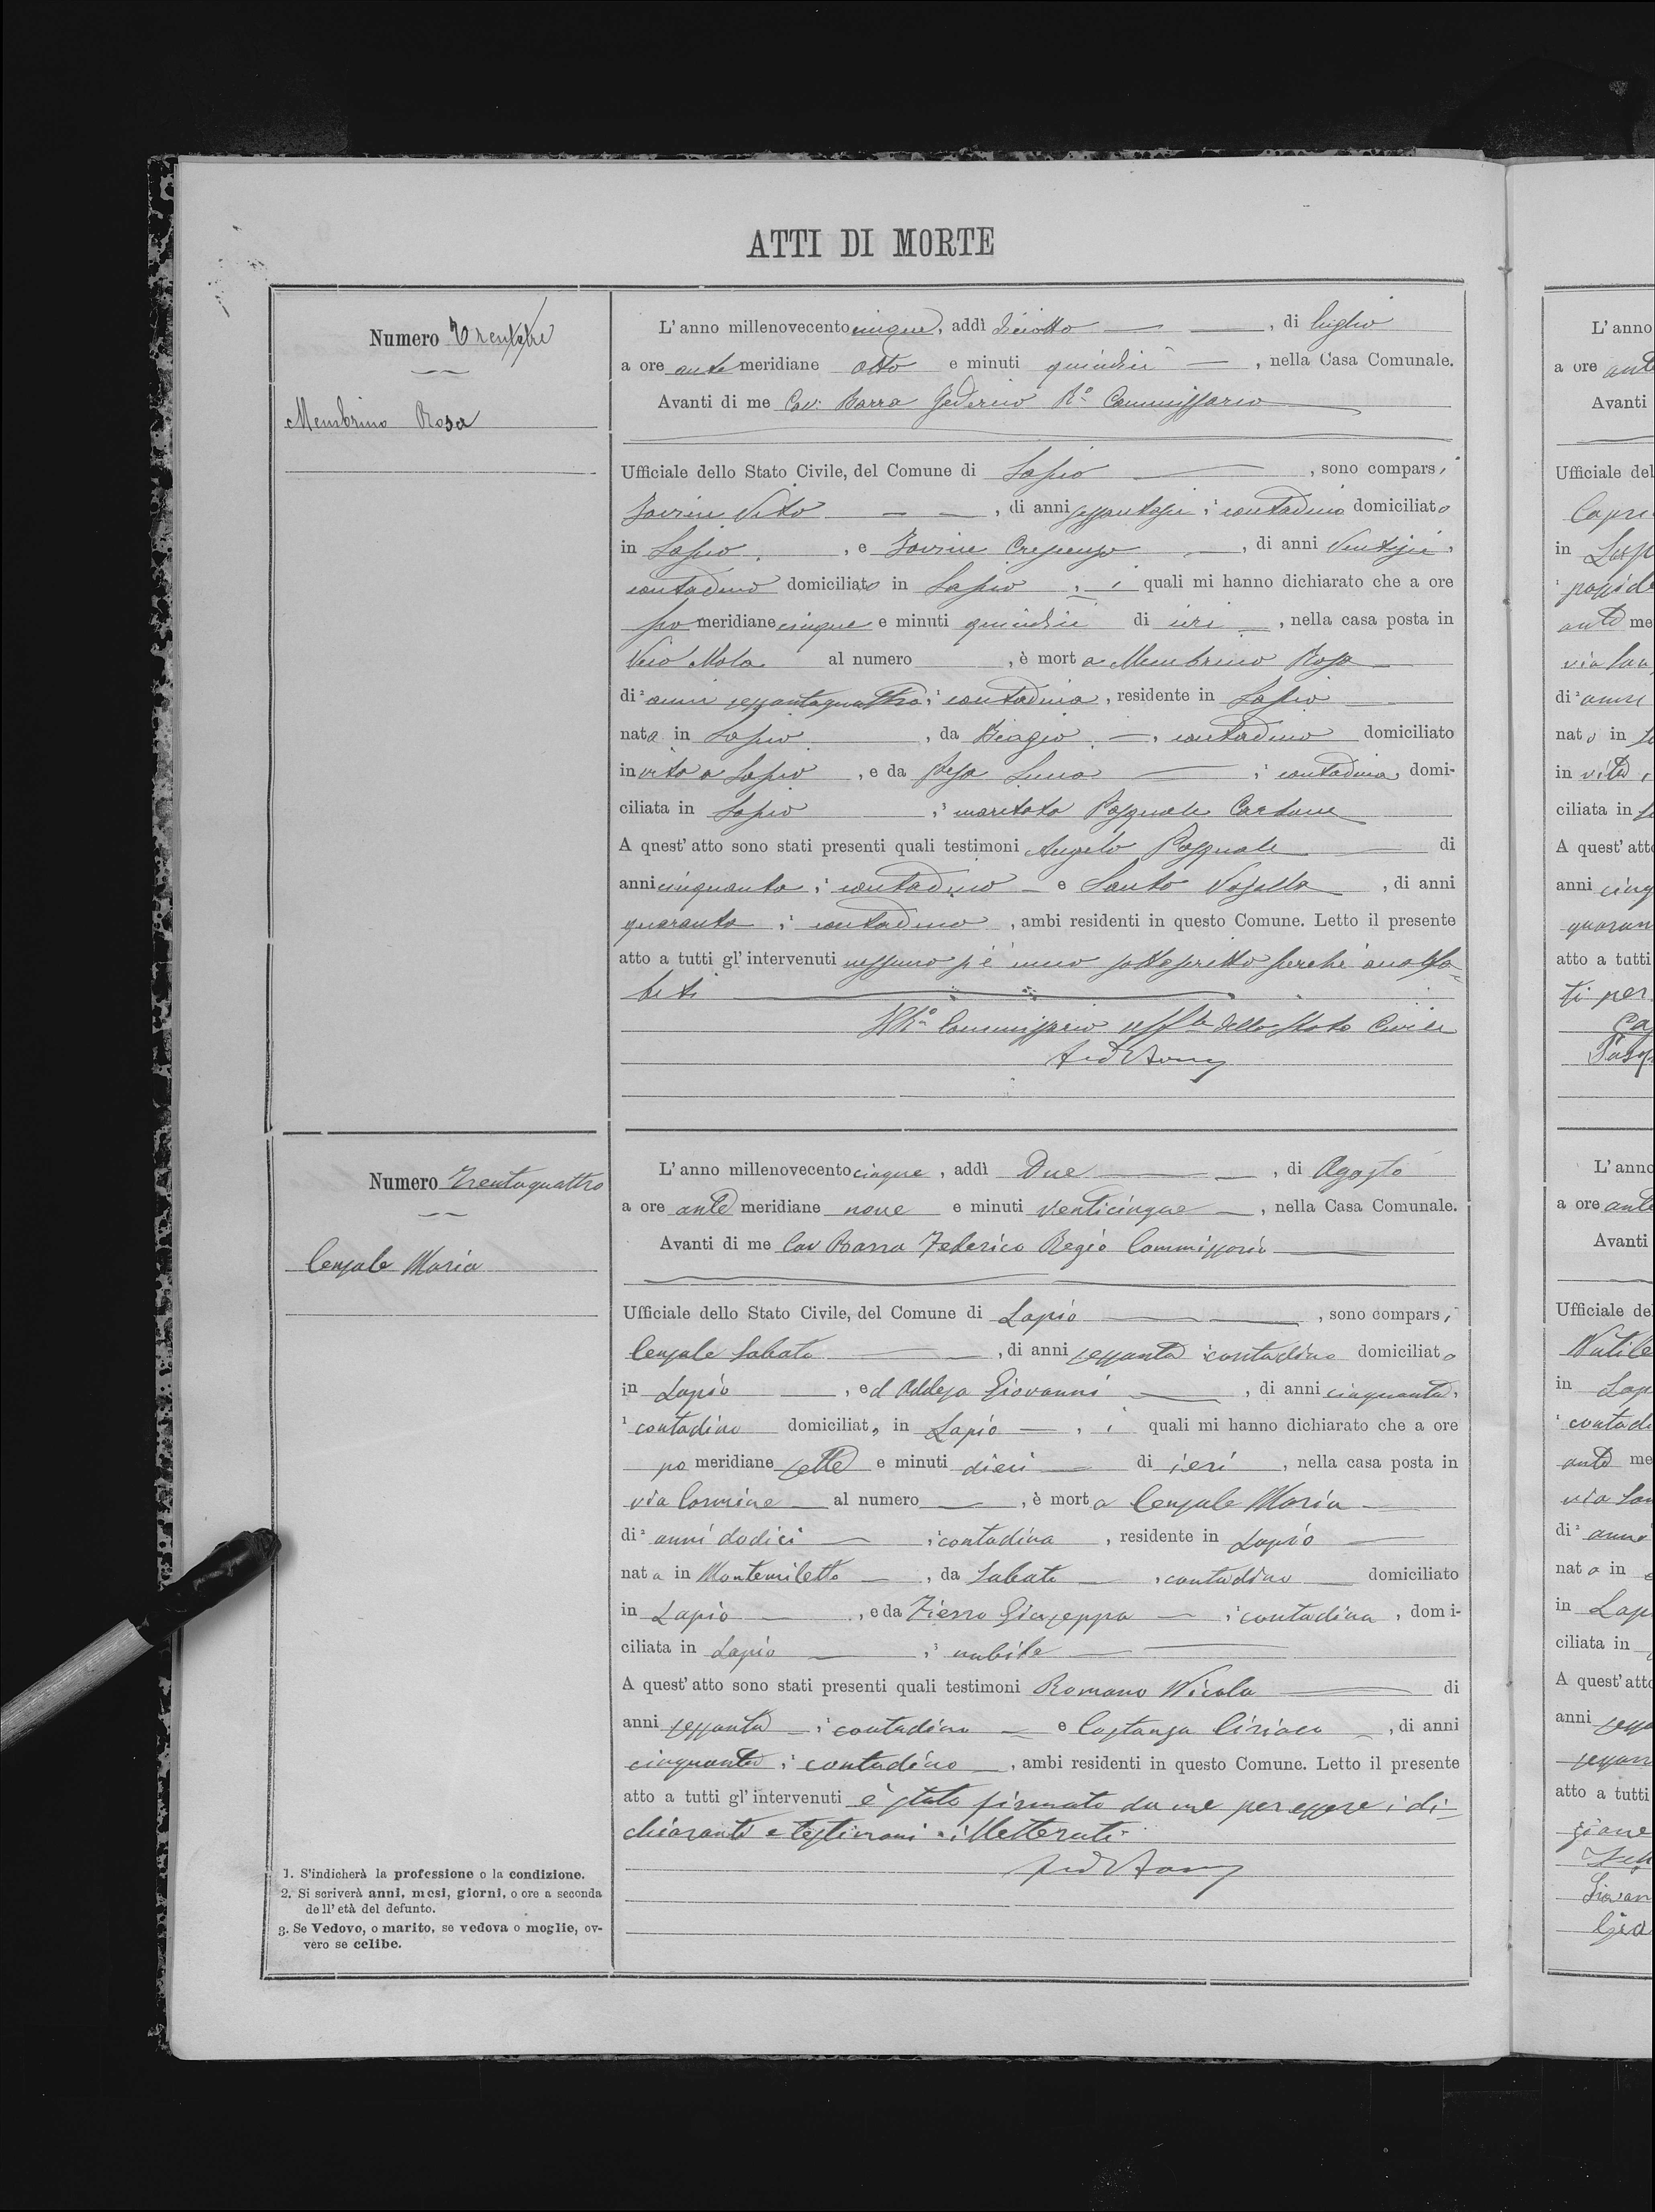 ATTI DI MORTE
Numero Trentatre
Membrino Rosa
L'anno millenovecentocinque, addì diciotto, di luglio
a ore antemeridiane otto e minuti quindici, nella Casa Comunale.
Avanti di me Cav: Barra Federico Ro Commissario
Ufficiale dello Stato Civile, del Comune di Lapio, sono comparsi
Iovine Vito, di anni sessantasei, contadino domiciliato
in Lapio, e Iovine Crescenzo, di anni ventisei,
contadino domiciliato in Lapio, i quali mi hanno dichiarato che a ore
pomeridiane cinque e minuti quindici di ieri, nella casa posta in
Vico Mola al numero, è morta Membrino Rosa
di anni sessantaquattro, contadina, residente in Lapio
nata in Lapio, da Biagio, contadino domiciliato
in vita a Lapio, e da Luca, contadina, domi-
ciliata in Lapio, maritata Pasquale Carbone
A quest'atto sono stati presenti quali testimoni Angelo Pasquale di
anni cinquanta, contadino e Santo, di anni
quaranta, contadino, ambi residenti in questo Comune. Letto il presente
atto a tutti gl'intervenuti nessuno si è meco sottoscritto perchè analfa-
beti
Il Ro Commissario uffle dello Stato Civile
Numero Trentaquattro
Cenzale Maria
L'anno millenovecentocinque, addì Due, di Agosto
a ore antemeridiane nove e minuti venticinque, nella Casa Comunale.
Avanti di me Cav Barra Federico Regio Commissario
Ufficiale dello Stato Civile, del Comune di Lapio, sono comparsi
Cenzale Sabato, di anni sessanta contadino domiciliato
in Lapio, ed Addesa Giovanni, di anni cinquanta,
contadino domiciliato in Lapio, i quali mi hanno dichiarato che a ore
pomeridiane sette e minuti dieci di ieri, nella casa posta in
via Carmine al numero, è morta Cenzale Maria
di anni dodici, contadina, residente in Lapio
nata in Montemiletto, da Sabato, contadino domiciliato
in Lapio, e da Fierro Giuseppa, contadina, domi-
ciliata in Lapio, nubile
A quest'atto sono stati presenti quali testimoni Romano Nicola di
anni sessanta, contadino e Costanza Ciriaco, di anni
cinquanta, contadino, ambi residenti in questo Comune. Letto il presente
atto a tutti gl'intervenuti è stato firmato da me per essere i di-
chiaranti e testimoni illetterati
1. S'indicherà la professione o la condizione.
2. Si scriverà anni, mesi, giorni, o ore a seconda
dell'età del defunto.
3. Se Vedovo, o marito, se vedova o moglie, ov-
vero se celibe.
L'anno
a ore ante
Avanti
Ufficiale del
in Lap
ante me
di anni
nato in
in vita
ciliata in
A quest'atto
anni cinq
quaran
atto a tutti
ti per
L'anno
a ore ante
Avanti
Ufficiale de
in Lap
contadi
ante me
di anni
nata in
in Lap
ciliata in
A quest'atto
anni
atto a tutti